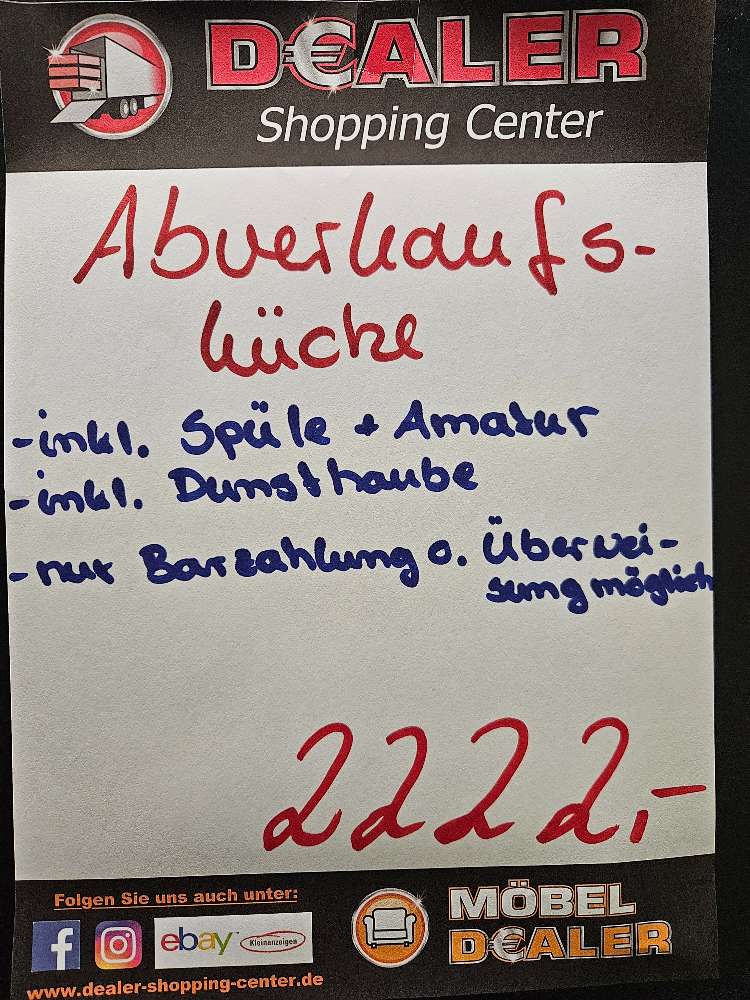 D€ALER
Shopping Center
Abverkaufs-
küche
-inkl. Spüle + Amatur
-inkl. Dunsthaube
-nur Barzahlung o. Überwei-
sung möglich
2222,-
Folgen Sie uns auch unter:
MÖBEL
D€ALER
f
ebay Kleinanzeigen
www.dealer-shopping-center.de